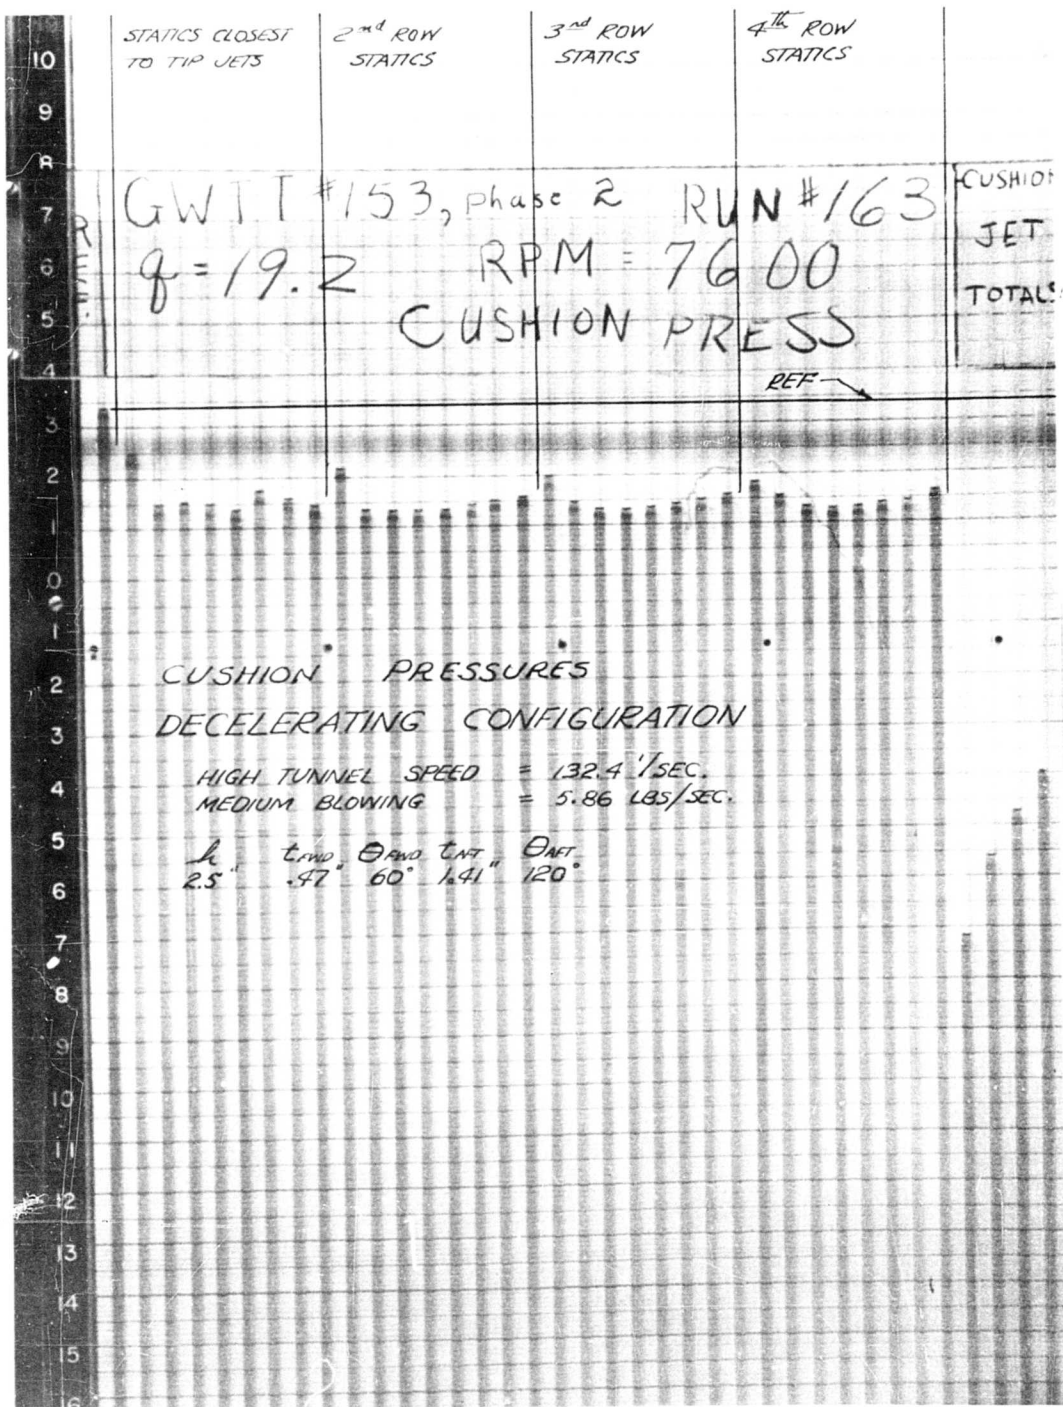 STATICS CLOSEST
TO TIP JETS
2nd ROW
STATICS
3nd ROW
STATICS
4th ROW
STATICS
10
9
8
7
6
5
4
3
2
1
0
1
2
3
4
5
6
7
8
9
10
11
12
13
14
15
16
REF.
GWTT #153, Phase 2 RUN #163
q = 19.2 RPM = 7600
CUSHION PRESS
CUSHION
JET
TOTALS
REF
CUSHION PRESSURES
DECELERATING CONFIGURATION
HIGH TUNNEL SPEED = 132.4 '/SEC.
MEDIUM BLOWING = 5.86 LBS/SEC.
h tFWD ΘFWD tAFT ΘAFT
2.5" .47" 60° 1.41" 120°